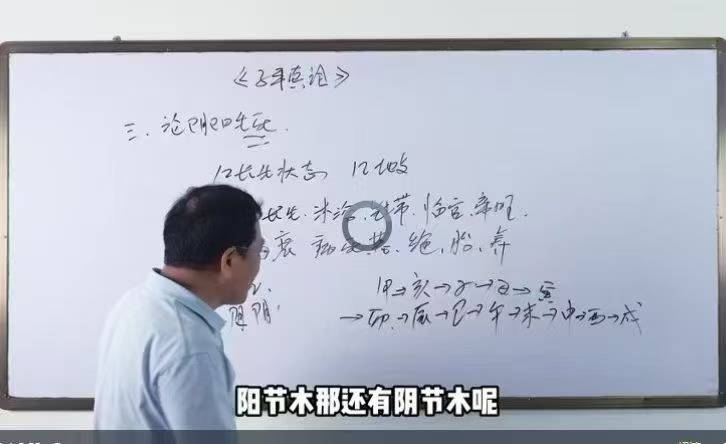 《子平真诠》
三、论阴阳生死
12长生状态 12地支
长生、沐浴、冠带、临官、帝旺、
衰 病 死 墓、绝、胎、养
甲→亥→子→丑→寅
→卯→辰→巳→午→未→申→酉→戌
阴：
阳节木那还有阴节木呢